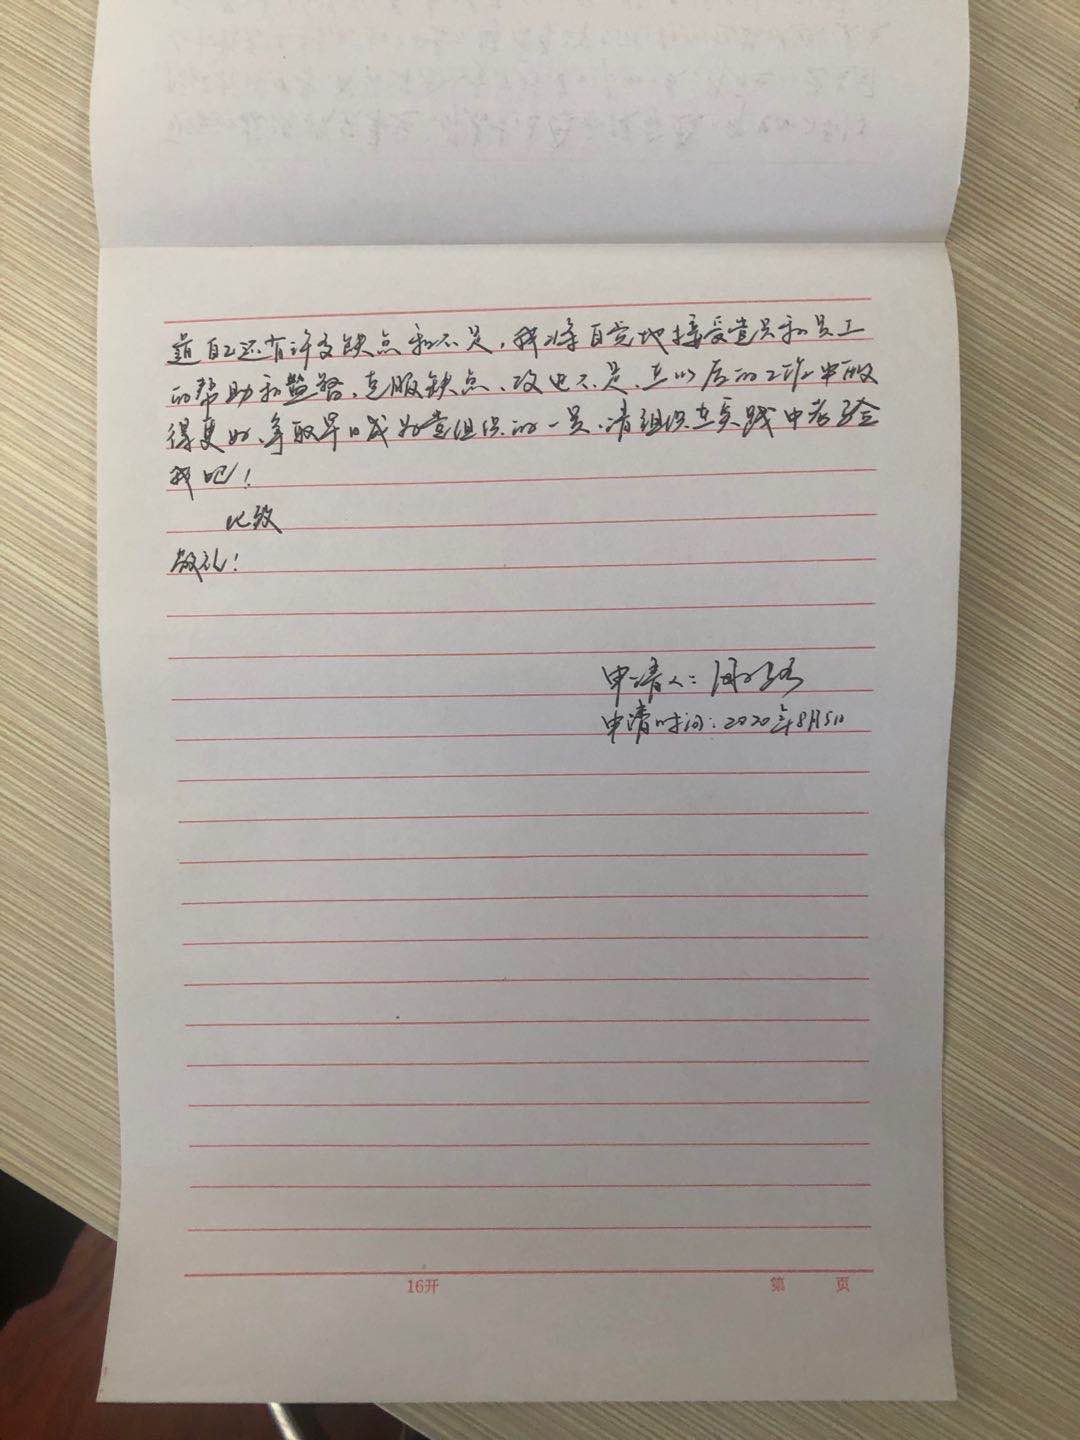 道自己还有许多缺点和不足，我将自觉地接受党员和员工
的帮助和监督，克服缺点、改正不足，在以后的工作中做
得更好，争取早日成为党组织的一员，请组织在实践中考验
我吧！
此致
敬礼！
申请人：
申请时间：2020年8月5日
16开
第 页